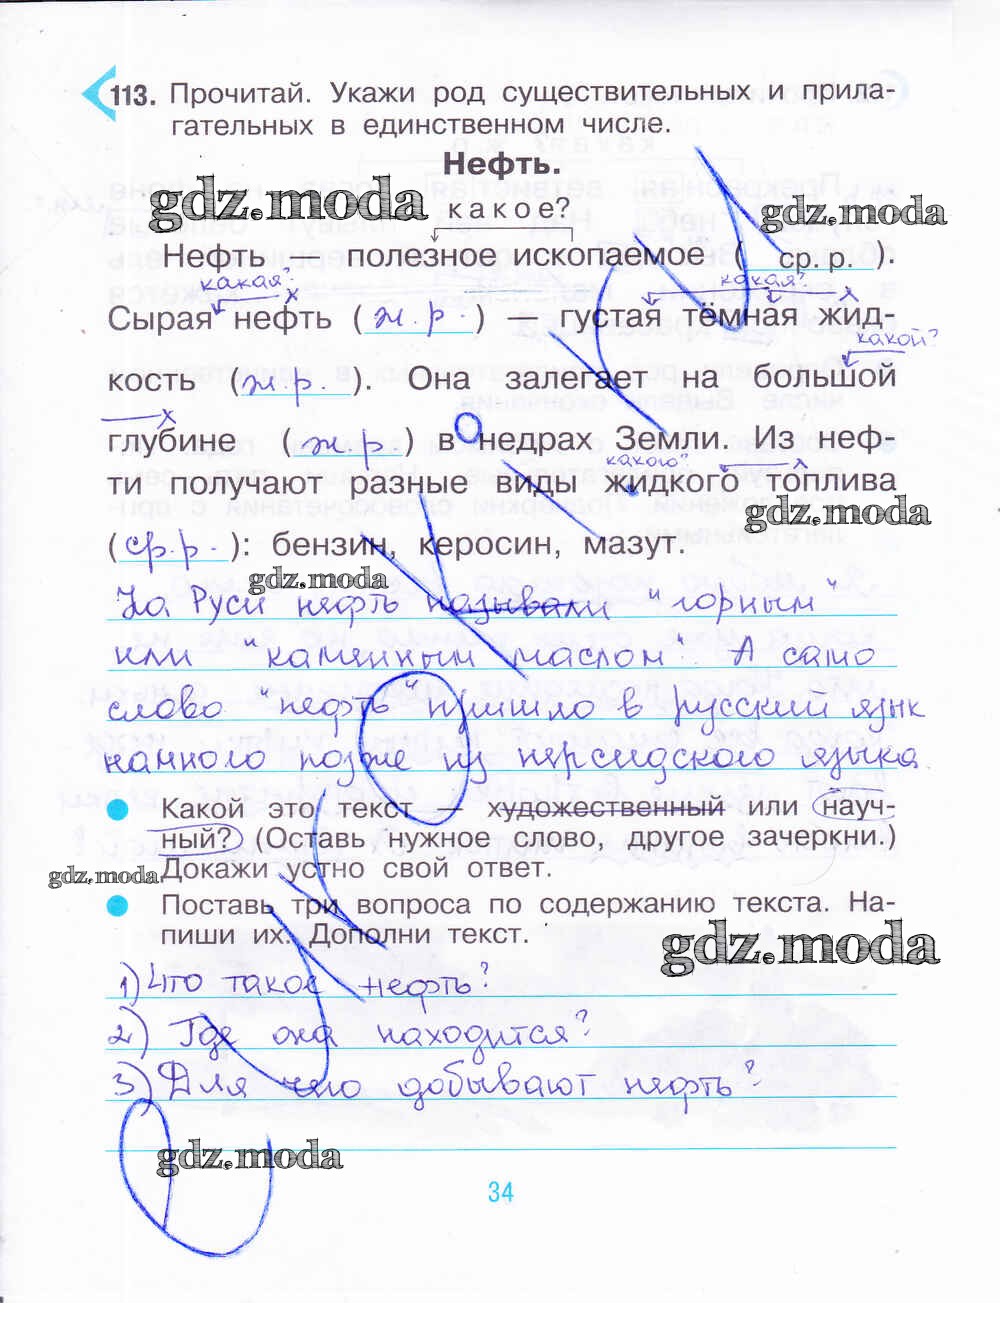 113. Прочитай. Укажи род существительных и прила-
гательных в единственном числе.
Нефть.
gdz.moda
какое?
gdz.moda
Нефть — полезное ископаемое ( ср. р. ).
какая? какая?
Сырая нефть ( ж. р. ) — густая тёмная жид-
какой?
кость ( ж. р. ). Она залегает на большой
глубине ( ж. р. ) в недрах Земли. Из неф-
какого?
ти получают разные виды жидкого топлива
gdz.moda
( ср. р. ): бензин, керосин, мазут.
gdz.moda
На Руси нефть называли "горным"
или "каменным маслом". А само
слово "нефть" пришло в русский язык
намного позже из персидского языка
Какой это текст — художественный или науч-
ный? (Оставь нужное слово, другое зачеркни.)
Докажи устно свой ответ.
gdz.moda
Поставь три вопроса по содержанию текста. На-
пиши их. Дополни текст.
gdz.moda
1) Что такое нефть?
2) Где она находится?
3) Для чего добывают нефть?
gdz.moda
34